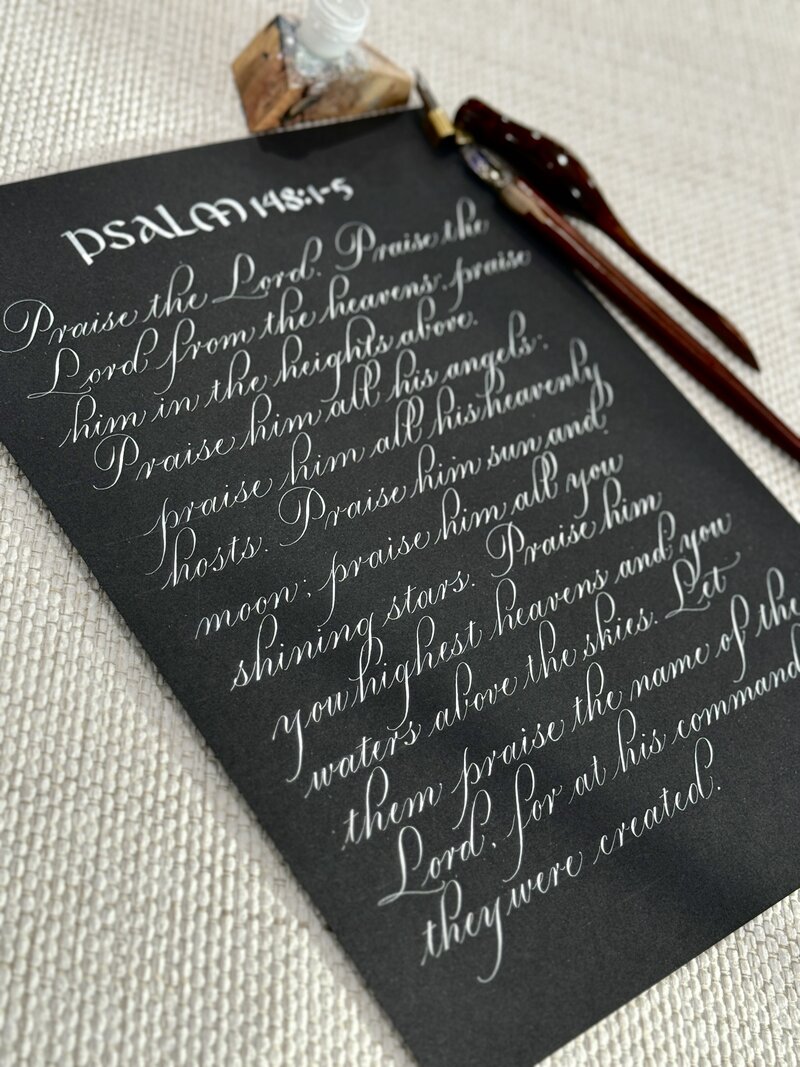 PSALM 148:1-5
Praise the Lord. Praise the
Lord from the heavens; praise
him in the heights above.
Praise him all his angels;
praise him all his heavenly
hosts. Praise him sun and
moon; praise him all you
shining stars. Praise him
you highest heavens and you
waters above the skies. Let
them praise the name of the
Lord, for at his command
they were created.